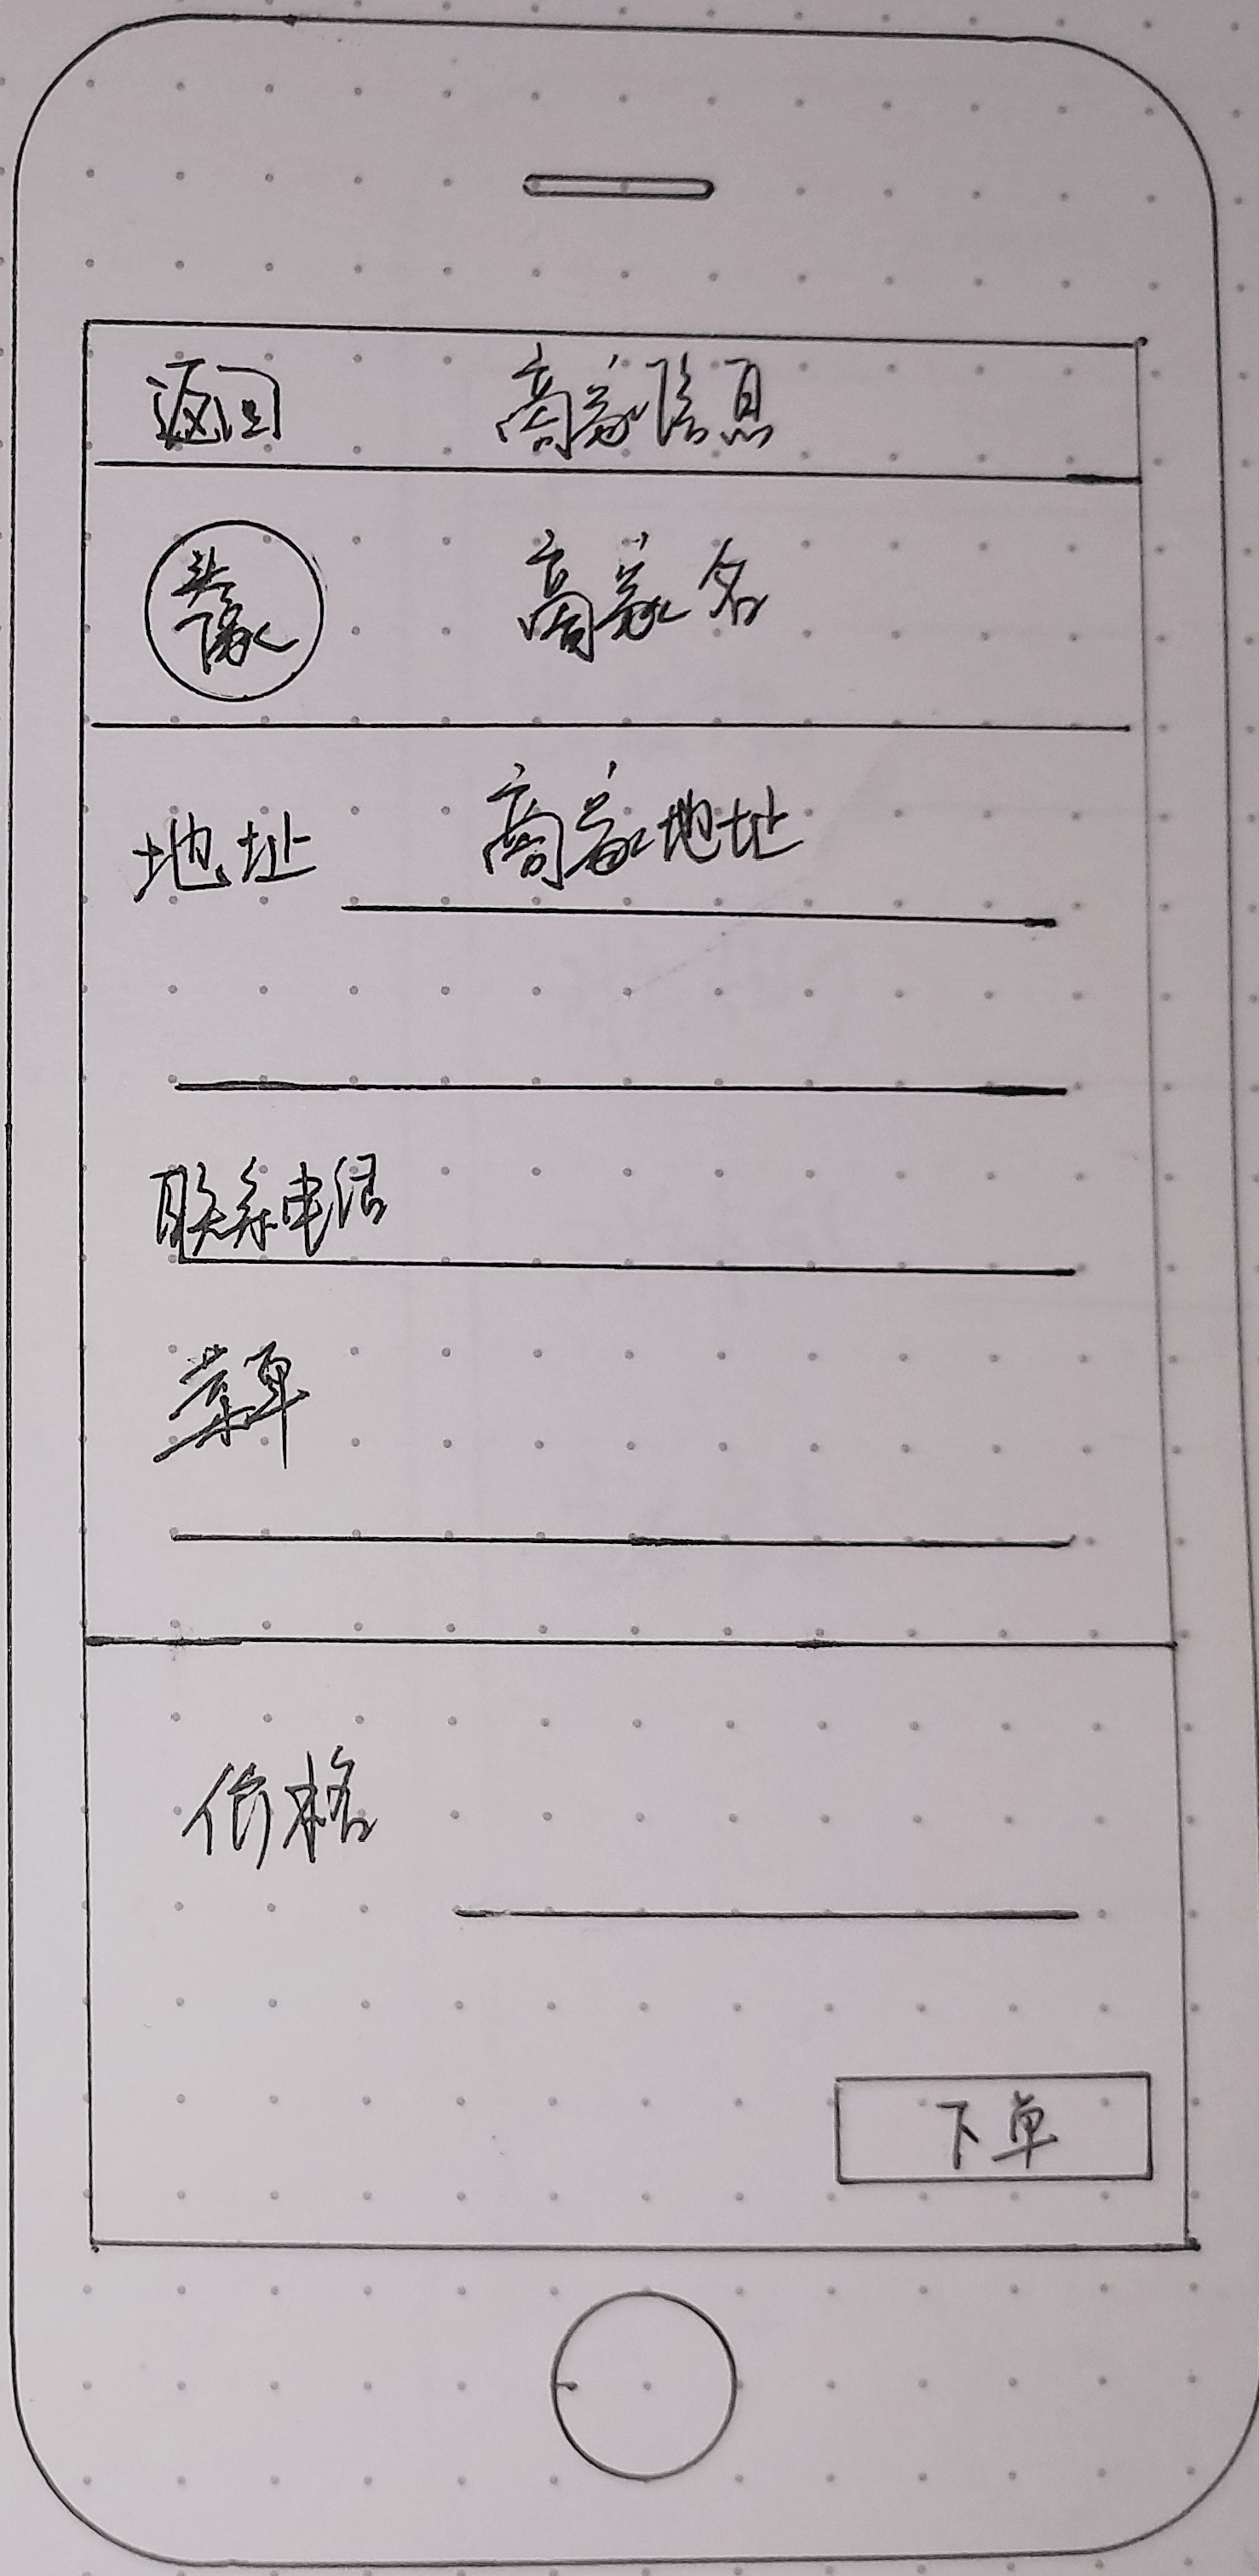 返回 商家信息
头像 商家名
地址 商家地址
联系电话
菜单
价格
下单